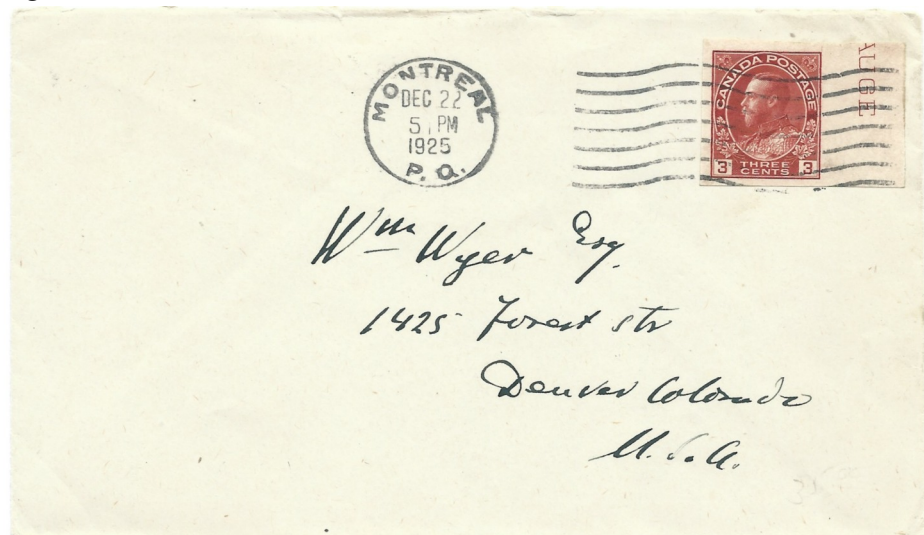 MONTREAL
DEC 22
5 PM
1925
P. Q.
CANADA POSTAGE
3 THREE CENTS 3
Wm Wyer Esq.
1425 Forest str
Denver Colorado
U.S.A.